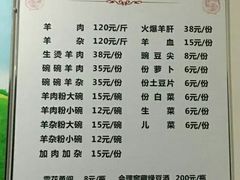 羊 肉 120元/斤 火爆羊肝 38元/份
羊 杂 120元/斤 羊 血 15元/份
生烫羊肉 38元/份 豌豆尖 8元/份
碗碗羊肉 35元/份 份萝卜 6元/份
碗碗羊杂 35元/份 份土豆片 6元/份
羊肉粉大碗 15元/碗 份白菜 6元/份
羊肉粉小碗 12元/碗 生 菜 6元/份
羊杂粉大碗 15元/碗 儿 菜 6元/份
羊杂粉小碗 12元/碗
加肉加杂 15元/份
8元/瓶 200元/瓶